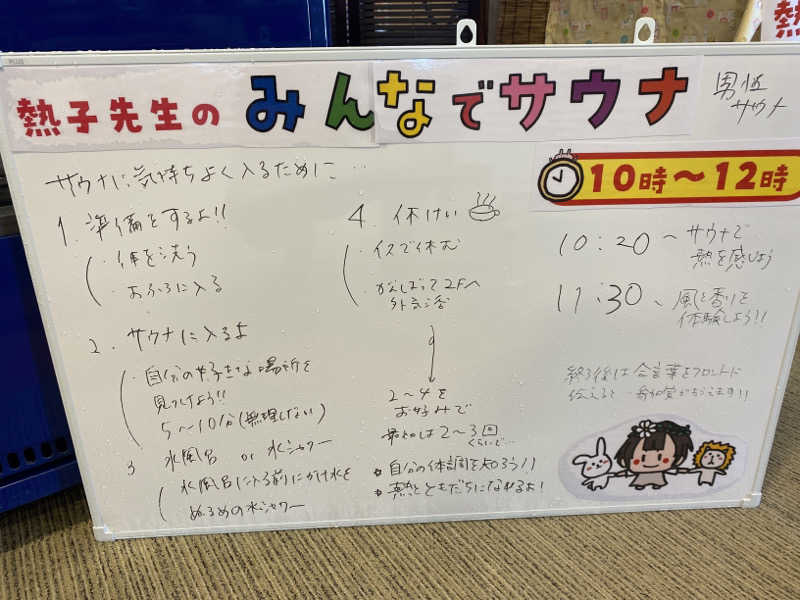 PLUS
熱子先生の みんなでサウナ
男性
サウナ
10時〜12時
サウナに気持ちよく入るために…
1. 準備をするよ!!
・体を洗う
・おふろに入る
2. サウナに入るよ
・自分の好きな場所を
見つけよう!!
5〜10分(無理しない)
3 水風呂 or 水シャワー
水風呂に入る前にかけ水を
ぬるめの水シャワー
4. 休けい
・イスで休む
・がんばって2Fへ
外気浴
2〜4を
お好みで
最初は2〜3回
くらいで…
自分の体調を知ろう!!
熱とともだちになれるよ!
10:20〜 サウナで
熱を感じよう
11:30〜 風と香りを
体験しよう!!
終了後は合言葉をフロントに
伝えると